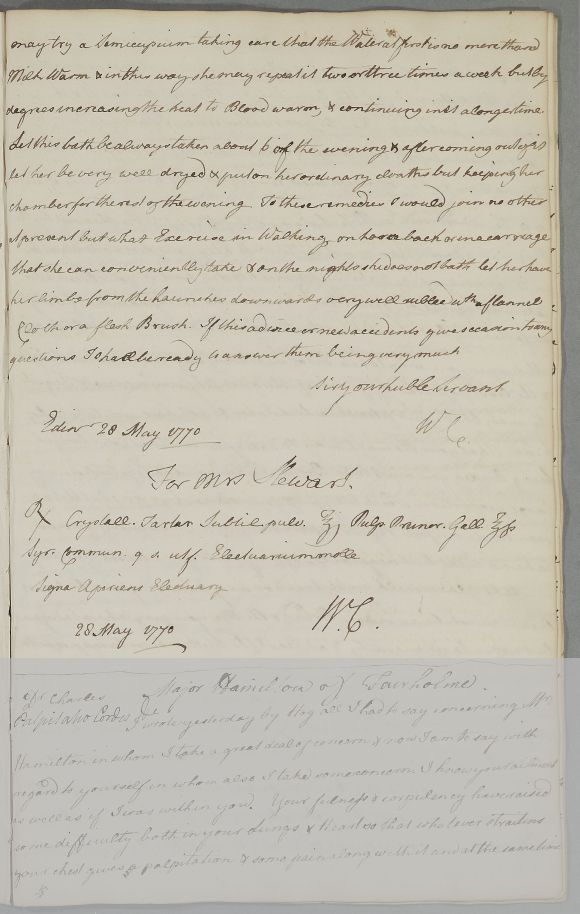 may try a Semicupium taking care that the Water at first is no more than
Milk Warm & in this way she may repeat it two or three times a week but by
degrees increasing the heat to Blood warm, & continuing in it a longer time.
Let this bath be always taken about 6 of the evening & after coming out of it
let her be very well dryed & put on her ordinary cloaths but keeping her
chamber for the rest of the evening. To these remedies I would join no other
at present but what Exercise in Walking, on horseback or in a carriage
that she can conveniently take & on the nights she does not bath let her have
her limbs from the haunches downwards very well rubbed wth a flannel
Cloth or a flesh Brush. If this advice or new accidents give occasion to any
questions I shall be ready to answer them being very much
Sir your huble Servant
W C.
Edinr 28 May 1770
For Mrs Stewart.
℞ Crystall. Tartar Subtil. pulv. ℥j Pulp Prunor. Gall ℥jß
Syr. Commun. q. s. utf. Electuarium molle
Signa Aperient Electuary
28 May 1770 W. C.
Major Hamilton of Fairholme.
Dr Charles
Palpitatio Cordis I wrote yesterday by Hog all I had to say concerning Mrs
Hamilton in whom I take a great deal of concern & now I am to say with
regard to yourself in whom also I take some concern. I know your ailment
as well as if I was within you. Your fulness & corpulency have raised
some difficulty both in your Lungs & Heart so that whatever straitens
your chest gives a palpitation & some pain along with it and at the same time